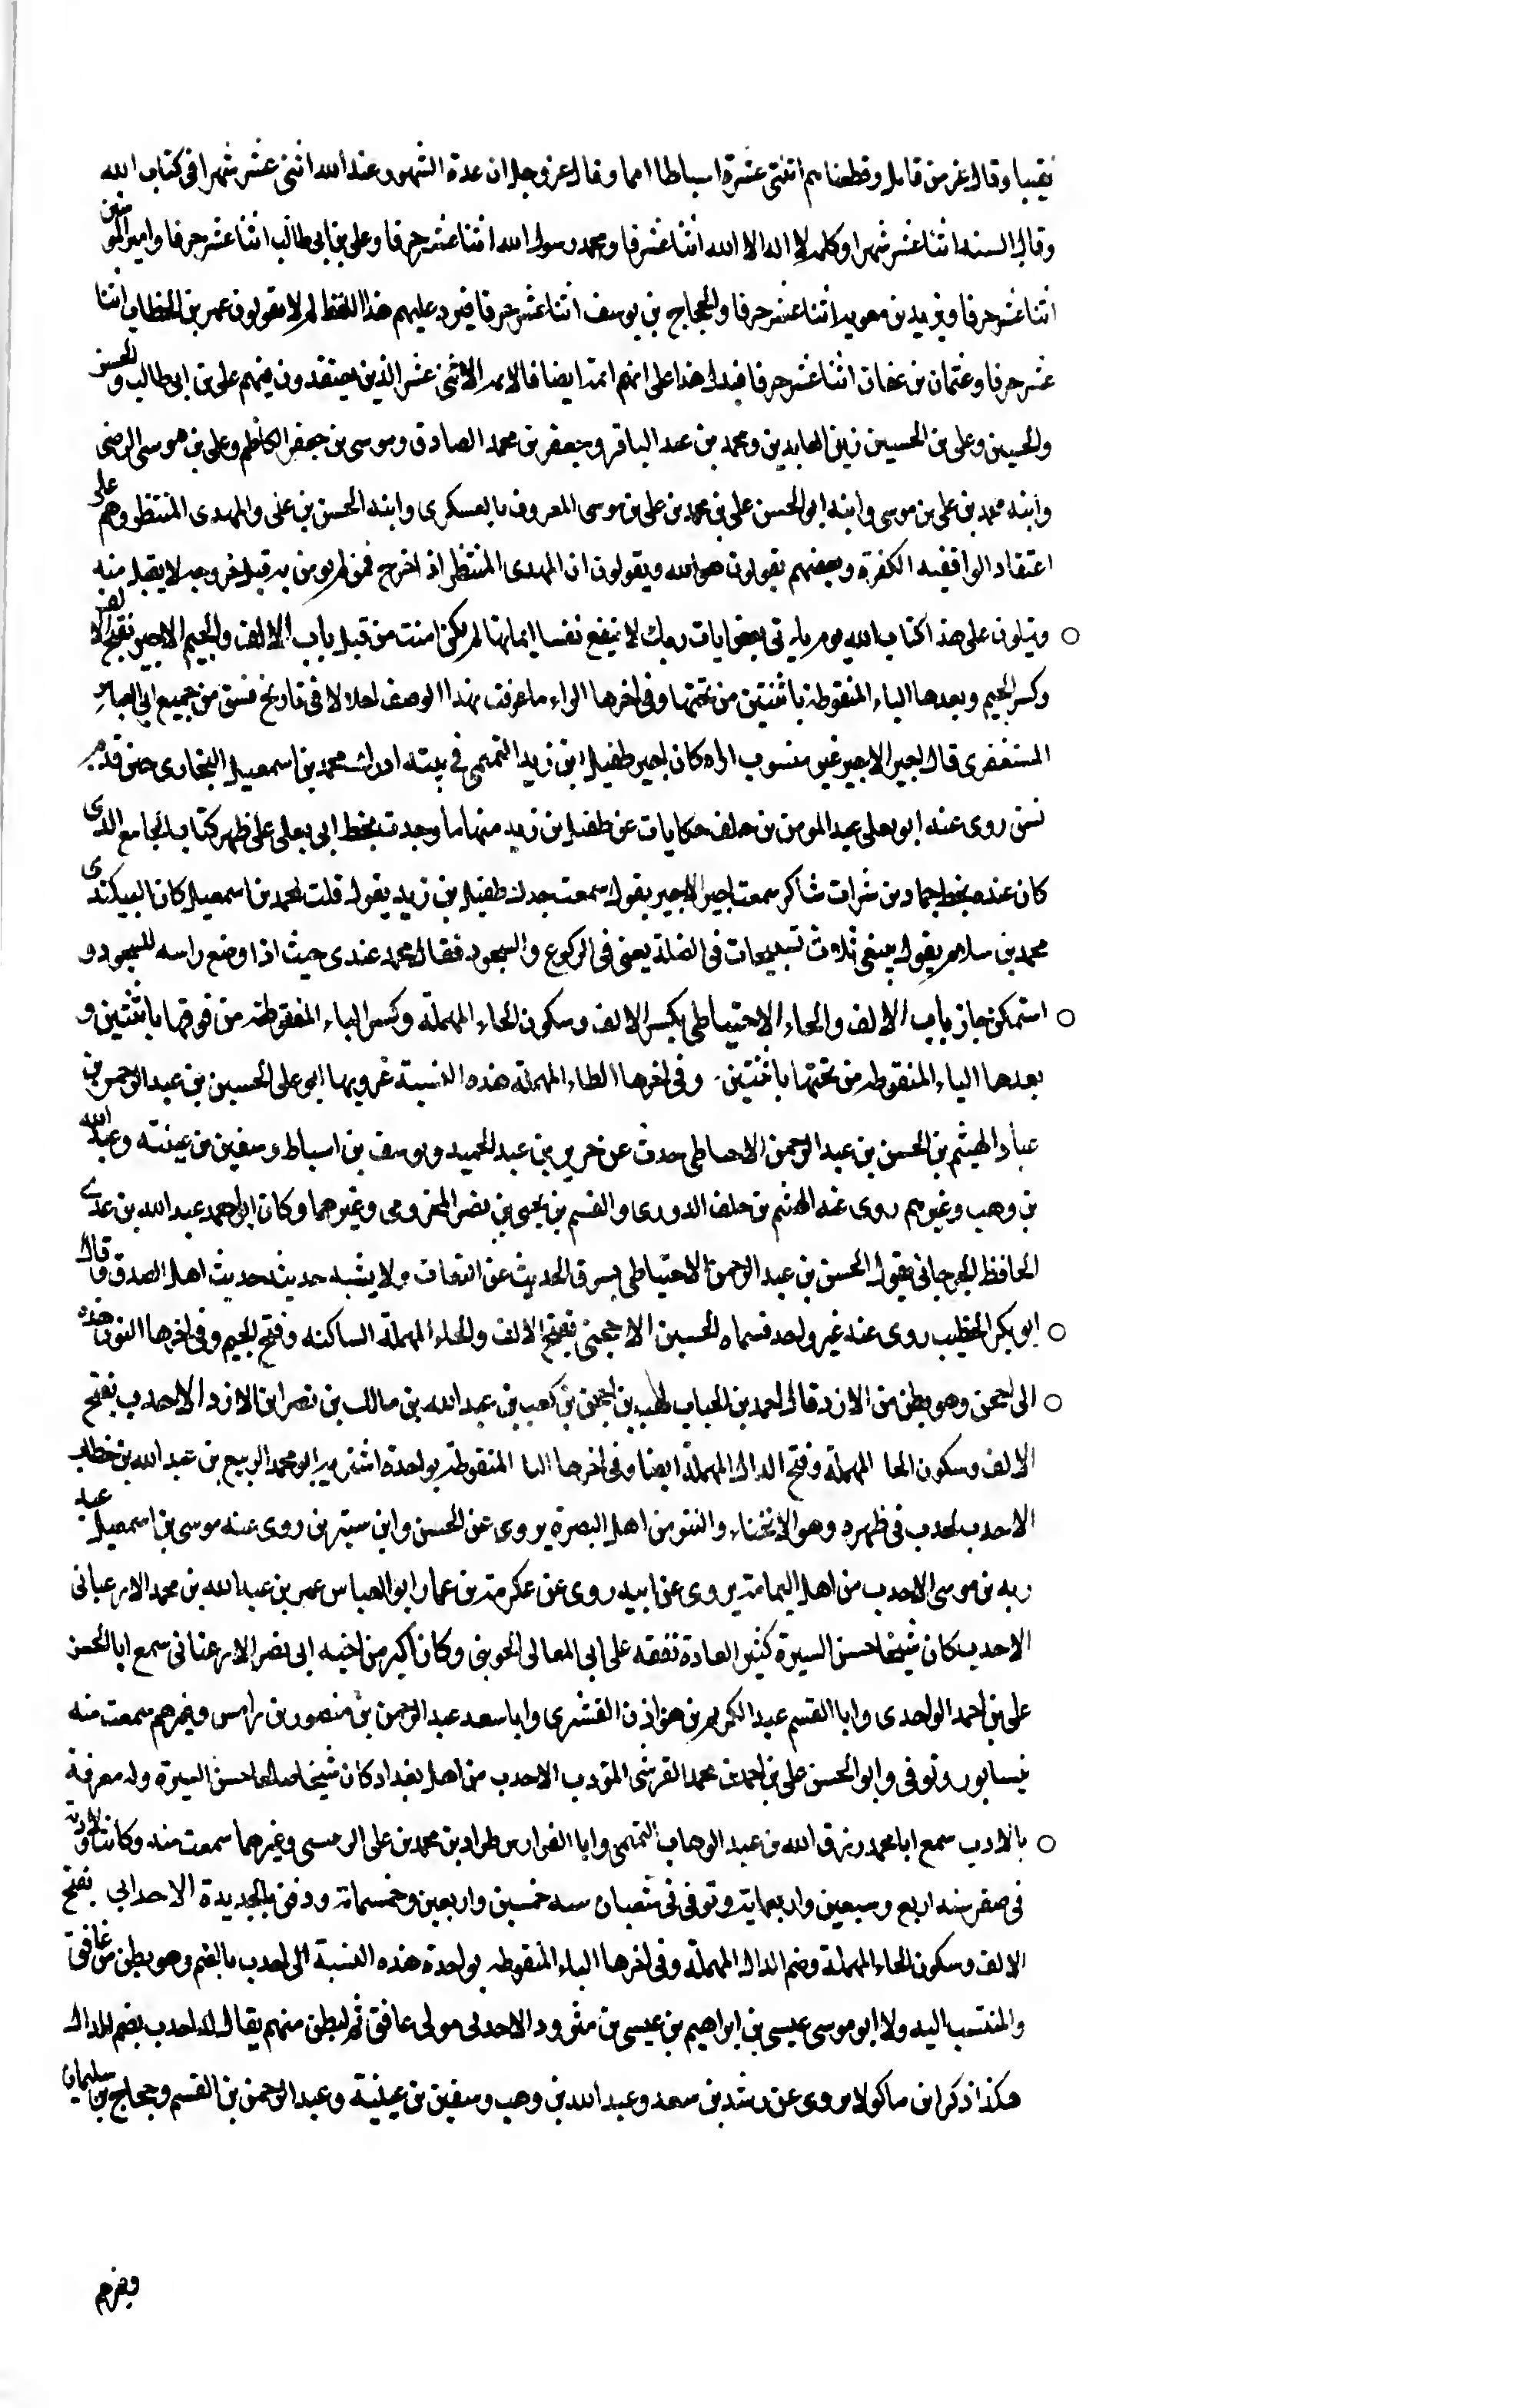 نقيبا وقال عز من قايل وقطعنا هم اثنتى عشرة اسباطا امما وقال عز وجل ان عدة الشهور عند الله اثنى عشر شهرا فى كتاب الله
وقال السنه اثنا عشر شهرا وكلمه لا اله الا الله اثنا عشر فا ومحمد رسول الله اثنا عشر حرفا وعلى بن ابى طالب اثنا عشر حرفا وامير المومنين
اثنا عشر حرفا ويزيد بن معويه اثنا عشر حرفا والحجاج بن يوسف اثنا عشر حرفا فيرد عليهم هذا اللفظ لم لا يقولون عمر بن الخطاب اثنا
عشر حرفا وعثمان بن عفان اثنا عشر حرفا فيدل هذا على انهم ائمة ايضا فالايمه الاثنى عشر الذين يعتقدون فيهم على بن ابى طالب والحسن
والحسين وعلى بن الحسين زين العابدين ومحمد بن عبد الباقر وجعفر بن محمد الصادق وموسى بن جعفر الكاظم وعلى بن موسى الرضى
وابنه محمد بن على بن موسى وابنه ابو الحسن على بن محمد بن على بن موسى المعروف بالعسكرى وابنه الحسن بن على والمهدى المنتظر وهم على
اعتقاد الواقفيه الكفرة وبعضهم يقولون هو الله ويقولون ان المهدى المنتظر اذ اخرج فمن لم يومن به قبل خروجه لا يقبل منه
ويتلون على هذا كتاب الله يوم ياتى بعض ايات ربك لا ينفع نفسا ايمانها لم تكن امنت من قبل باب الالف والجيم الاجير بفتح الالف
وكسر الجيم وبعدها الياء المنقوطة باثنتين من تحتها وفى اخرها الراء ما عرفت بهذا الوصف احدا الا فى تاريخ نسف من جميع ابى العباس
المستغفرى قال اجير الاجير غير منسوب اراه كان اجير طفيل ابن زيد التميمى فى بيته ادرك محمد بن اسمعيل البخارى حين قدم
نسف روى عنه ابو يعلى عبد المومن بن خلف حكايات عن طفيل بن زيد منها ما وجدته بخط ابى يعلى على ظهر كتاب الجامع الذى
كان عنده بخط حماد بن شاكر سمعت اجير الاجير يقول سمعت جدك طفيل بن زيد يقول قلت لمحمد بن اسمعيل كان البيكندى
محمد بن سلام يقول ينبغى ثلاث تسبيحات فى الصلة يعنى فى الركوع والسجود فقال محمد عندى حيث اذا وضع راسه للسجود و
استمكن جاز باب الالف والحاء الاحتياطى بكسر الالف وسكون الحاء المهملة وكسر التاء المنقوطة من فوقها باثنتين و
بعدها الياء المنقوطه من تحتها باثنتين وفى اخرها الطاء المهملة هذه النسبة عرف بها ابو على الحسين بن عبد الرحمن بن
عباد الهيثم بن الحسن بن عبد الرحمن الاحتياطى حدث عن جرير بن عبد الحميد ويوسف بن اسباط وسفين بن عيينه وعبد الله
بن وهب وغيرهم روى عنه الهيثم بن خلف الدورى والقسم بن يحيى بن نصر المخرومى وغيرهما وكان ابو احمد عبد الله بن عدى
الحافظ الجرجانى يقول الحسن بن عبد الرحمن الاحتياطى يسرق الحديث عن الثقات ولا يشبه حديثه حديث اهل الصدق قال
ابو بكر الخطيب روى عنه غير واحد فسماه الحسين الاحجنى بفتح الالف والحاء المهملة الساكنه وفتح الجيم وفى اخرها النون هذه
الى احجن وهو بطن من الازد قال احمد بن الحباب لهب بن احجن بن كعب بن عبد الله بن مالك بن نصر ابن الازد الاحدب بفتح
الالف وسكون الحا المهملة وفتح الدال المهملة ايضا وفى اخرها البا المنقوطه بواحدة اشتهر به ابو محمد الربيع بن عبد الله بن خطاب
الاحدب لحدب فى ظهره وهو الانحناء والنتو من اهل البصرة يروى عن الحسن وابن سيرين روى عنه موسى بن اسمعيل عبد
ربه بن موسى الاحدب من اهل اليمامة يروى عن ابيه روى عن عكرمة بن عمار ابو العباس عمر بن عبد الله بن محمد الارغيانى
الاحدب كان شيخا حسن السيرة كثير العبادة تفقه على ابى المعالى الجوينى وكان اكبر من اخيه ابى نصر الارغيانى سمع ابا الحسن
على بن احمد الواحدى وابا القسم عبد الكريم بن هوازن القشيرى وابا سعد عبد الرحمن بن منصور بن رامش وغيرهم سمعت منه
نيسابور وتوفى وابو الحسن على بن احمد بن محمد القرشى المؤدب الاحدب من اهل بغداد كان شيخا صالحا حسن السيرة وله معرفة
بالادب سمع ابا محمد رزق الله بن عبد الوهاب التميمى وابا الفوارس طراد بن محمد بن على الزينبى وغيرهما سمعت منه وكانت ولادته
فى صفر سنه اربع وسبعين واربعماية وتوفى فى شعبان سنه خمسين واربعين وخمسماة ودفن بالجديدة الاحدابى بفتح
الالف وسكون الحاء المهملة وضم الدال المهملة وفى اخرها الباء المنقوطه بواحدة هذه النسبة الى احدب بالضم وهو بطن من غافق
والمنتسب اليه ولا ابو موسى عيسى بن ابراهيم بن عيسى بن مثرود الاحدبى مولى غافق ثم لبطن منهم يقال له احدب بضم الدال
هكذا ذكر ابن ماكولا يروى عن رشد بن سعد وعبد الله بن وهب وسفين بن عيينة وعبد الرحمن بن القسم وحجاج بن سليمان
وغيرهم